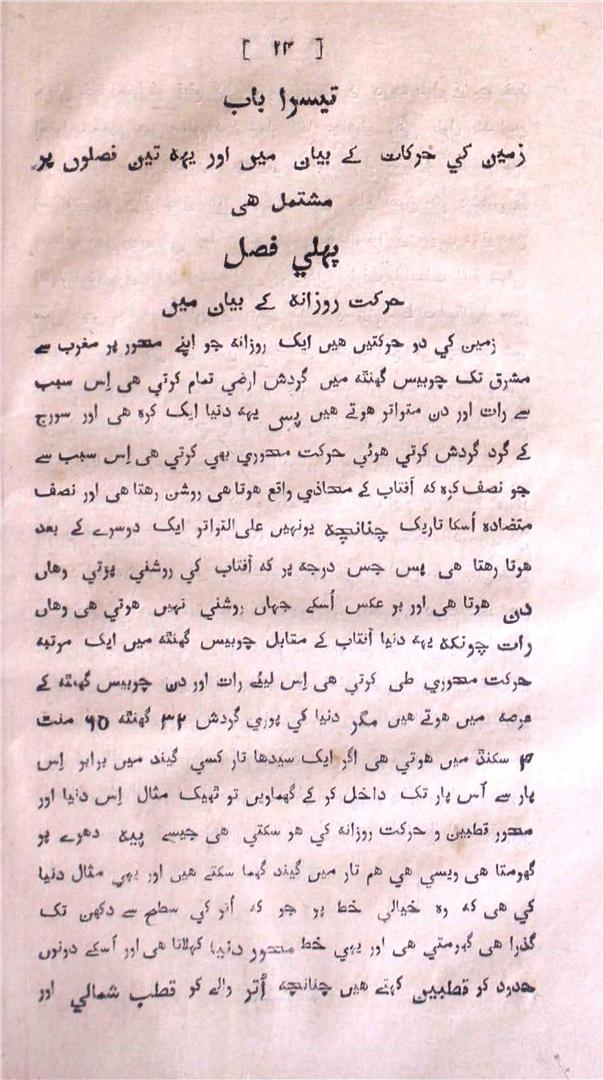 [ ۲۳ ]
تیسرا باب
زمین کي حرکات کے بیان میں اور یہہ تین فصلوں پر
مشتمل هی
پہلي فصل
حرکت روزانه کے بیان میں
زمین کي دو حرکتیں هیں ایک روزانه جو اپنے محور پر مغرب سے
مشرق تک چوبیس گهنٹه میں گردش ارضي تمام کرتي هی اِس سبب
سے رات اور دن متواتر هوتے هیں پس یهه دنیا ایک کره هی اور سورج
کے گرد گردش کرتي هوئي حرکت محوري بهي کرتي هی اِس سبب سے
جو نصف کره که آفتاب کے محاذي واقع هوتا هی روشن رهتا هی اور نصف
متضاده اُسکا تاریک چنانچه یونہیں علی التواتر ایک دوسرے کے بعد
هوتا رهتا هی پس جس درجه پر که آفتاب کي روشني پڑتي وهاں
دن هوتا هی اور بر عکس اُسکے جهاں روشني نهیں هوتي هی وهاں
رات چونکه یهه دنیا آفتاب کے مقابل چوبیس گهنٹه میں ایک مرتبه
حرکت محوري طی کرتي هی اِس لیئے رات اور دن چوبیس گهنٹه کے
عرصه میں هوتے هیں مگر دنیا کي پوري گردش ۲۳ گهنٹه ۵۶ منٹ
۴ سکنڈ میں هوتي هی اگر ایک سیدها تار کسي گیند میں برابر اِس
پار سے اُس پار تک داخل کر کے گهماویں تو ٹهیک مثال اِس دنیا اور
محور قطبین و حرکت روزانه کي هو سکتي هی جیسے پیه دهرے پر
گهومتا هی ویسي هي هم تار میں گیند گهما سکتے هیں اور یهي مثال دنیا
کي هی که وه خیالي خط پر جو که اُتر کي سطح سے دکهن تک
گذرا هی گهومتي هی اور یهي خط محور دنیا کہلاتا هی اور اُسکے دونوں
حدود کو قطبین کہتے هیں چنانچه اُتر والے کو قطب شمالي اور